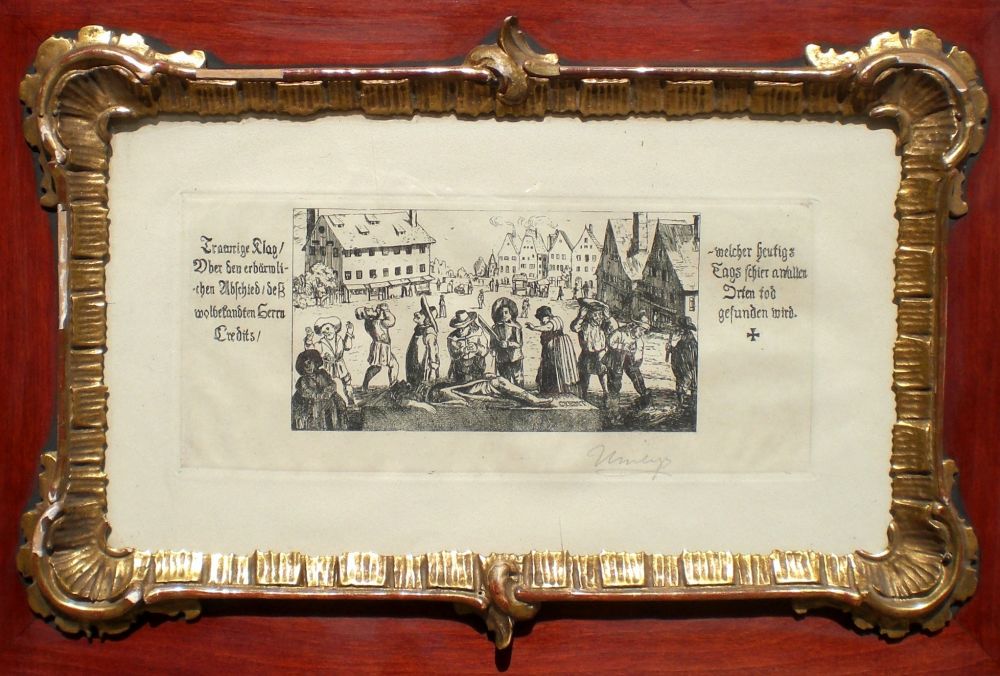 Traurige Klag/
Vber den erbärmli-
-chen Abschied/deß
wolbekandten Herrn
Credits/
-welcher heutigs
Tags schier an allen
Orten tod
gefunden wird.